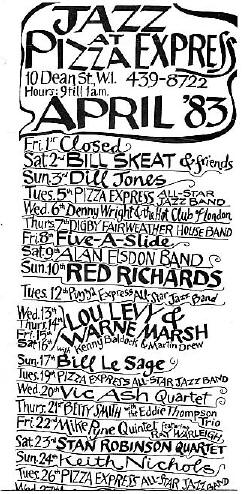 JAZZ
AT
PIZZA EXPRESS
10 Dean St, W.1. 439-8722
Hours: 9 till 1am.
APRIL '83
Fri. 1st Closed
Sat. 2nd BILL SKEAT & friends
Sun. 3rd Dill Jones
Tues. 5th PIZZA EXPRESS ALL-STAR JAZZ BAND
Wed. 6th Denny Wright & the Hot Club of London
Thurs. 7th DIGBY FAIRWEATHER HOUSE BAND
Fri. 8th Five-A-Slide
Sat. 9th ALAN ELSDON BAND
Sun. 10th RED RICHARDS
Tues. 12th Pizza Express All-Star Jazz Band
Wed. 13th
Thurs. 14th
Fri. 15th
Sat. 16th
LOU LEVY &
WARNE MARSH
with Kenny Baldock & Martin Drew
Sun. 17th Bill Le Sage
Tues. 19th PIZZA EXPRESS ALL-STAR JAZZ BAND
Wed. 20th Vic Ash Quartet
Thurs. 21st BETTY SMITH with the Eddie Thompson Trio
Fri. 22nd Mike Pyne Quintet featuring RAY WARLEIGH
Sat. 23rd STAN ROBINSON QUARTET
Sun. 24th Keith Nichols
Tues. 26th PIZZA EXPRESS ALL-STAR JAZZ BAND